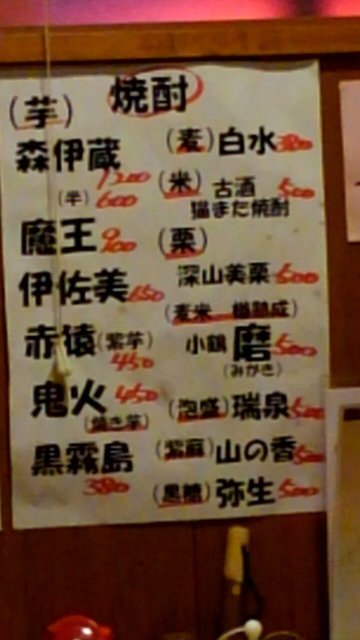 焼酎
(芋)
森伊蔵
1200
(半) 600
魔王 900
伊佐美 650
赤猿 (紫芋)
450
鬼火 450
(焼き芋)
黒霧島
380
(麦) 白水 380
(米) 古酒 500
猫また焼酎
(栗)
深山美栗 500
(麦米 樽熟成)
小鶴 磨 500
(みがき)
(泡盛) 瑞泉 500
(紫蘇) 山の香 500
(黒糖) 弥生 500